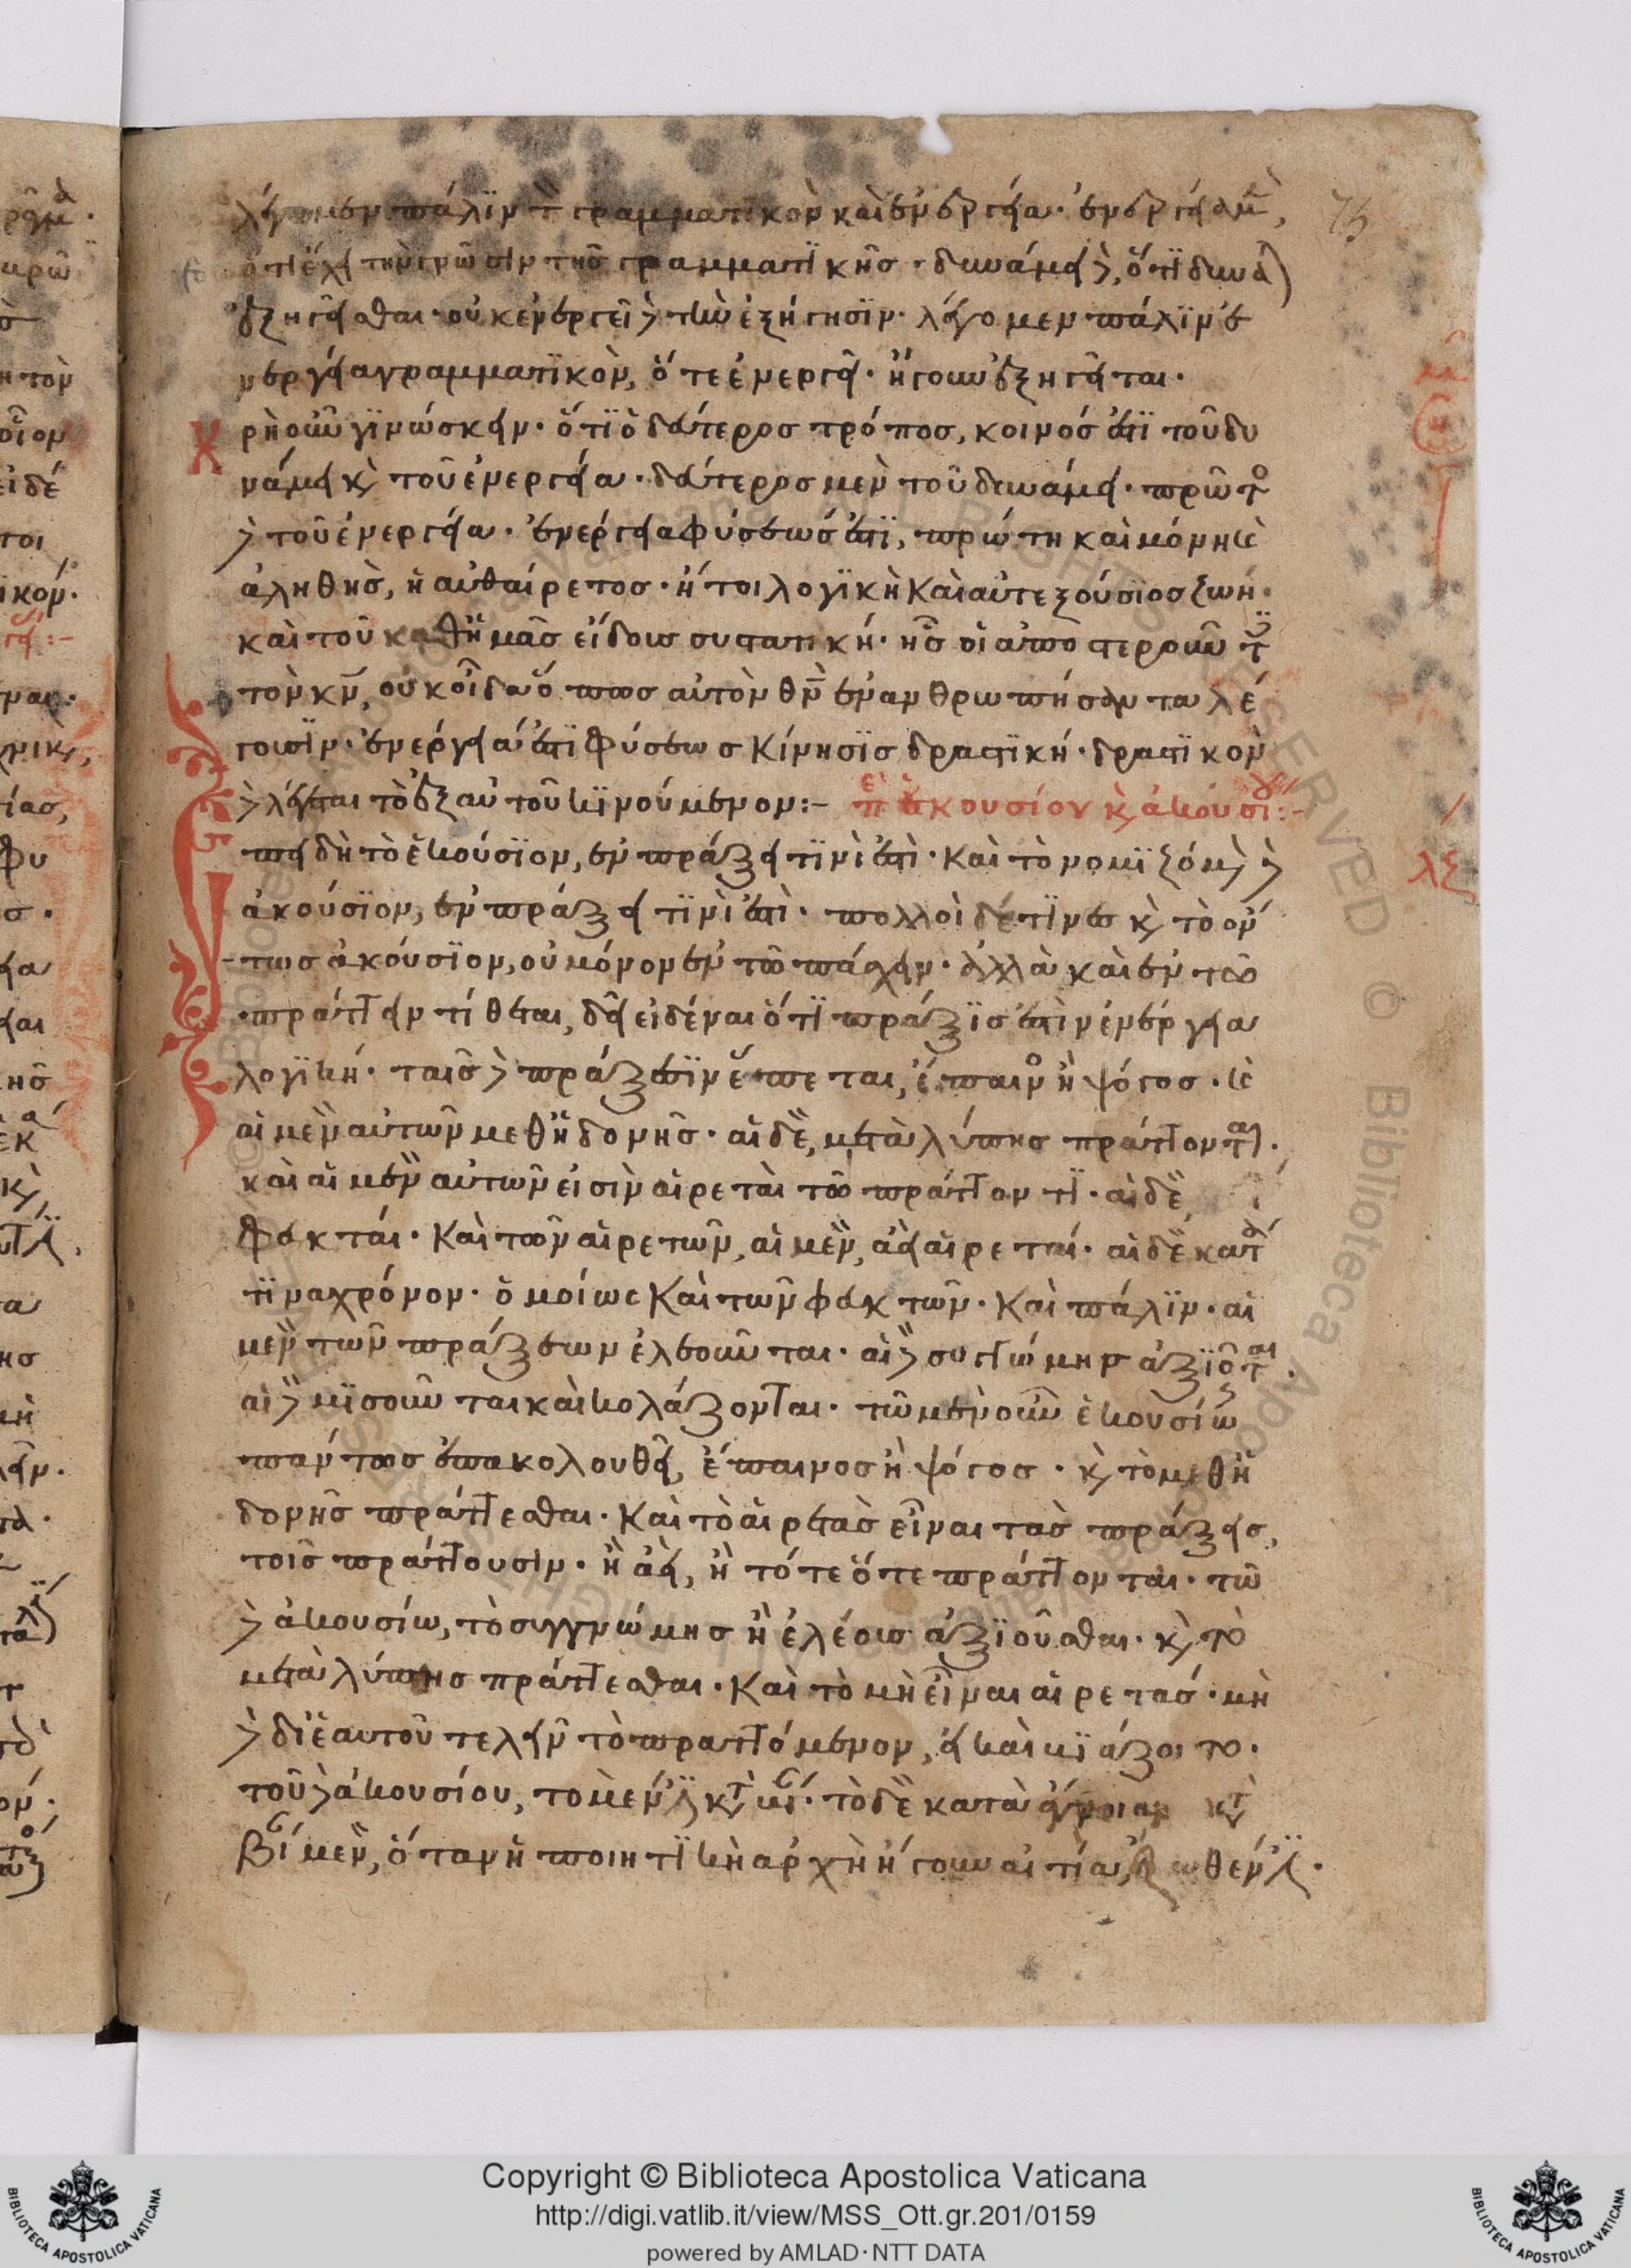 λέγομεν πάλιν τὸν γραμματικὸν καὶ ἐνεργείᾳ· ἐνεργείᾳ μὲν,
ὅτι ἔχει τὴν γνῶσιν τῆς γραμματικῆς· δυνάμει δὲ, ὅτι δύναται
ἐξηγεῖσθαι· οὐκ ἐνεργεῖ δὲ τὴν ἐξήγησιν· λέγομεν πάλιν ἐ
νεργείᾳ γραμματικὸν, ὅτε ἐνεργεῖ· ἤγουν ἐξηγεῖται·
Χρὴ οὖν γινώσκειν· ὅτι ὁ δεύτερος τρόπος, κοινός ἐστι τοῦ δυ
νάμει καὶ τοῦ ἐνεργείᾳ· δεύτερος μὲν τοῦ δυνάμει· πρῶτος
δὲ τοῦ ἐνεργείᾳ· ἐνέργεια φύσεώς ἐστι, πρώτη καὶ μόνη καὶ
ἀληθὴς, ἡ αὐθαίρετος· ἤτοι λογικὴ καὶ αὐτεξούσιος ζωή·
καὶ τοῦ καθ' ἡμᾶς εἴδους συστατική· ἧς οἱ ἀποστεροῦντες
τὸν κν, οὐκ οἶδα ὅπως αὐτὸν θν ἐνανθρωπήσαντα λέ
γουσιν· ἐνέργειά ἐστι φύσεως κίνησις δραστική· δραστικὸν
δὲ λέγεται τὸ ἐξ αὐτοῦ κινούμενον:- περὶ ἑκουσίου καὶ ἀκουσίου:-
Ἐπειδὴ τὸ ἑκούσιον, ἐν πράξει τινὶ ἐστὶ· καὶ τὸ νομιζόμενον δὲ
ἀκούσιον, ἐν πράξει τινὶ ἐστὶ· πολλοὶ δέ τινες καὶ τὸ ὄν
τως ἀκούσιον, οὐ μόνον ἐν τῷ πάσχειν· ἀλλὰ καὶ ἐν τῷ
πράττειν τίθεται, δεῖ εἰδέναι ὅτι πράξις ἐστὶν ἐνέργεια
λογική· ταῖς δὲ πράξεσιν ἕπεται, ἔπαινος ἢ ψόγος· καὶ
αἱ μὲν αὐτῶν μεθ' ἡδονῆς· αἱ δὲ, μετὰ λύπης πράττονται·
καὶ αἱ μὲν αὐτῶν εἰσὶν αἱρεταὶ τῷ πράττοντι· αἱ δὲ
φευκταί· καὶ τῶν αἱρετῶν, αἱ μὲν, ἀεὶ αἱρεταί· αἱ δὲ κατά
τινα χρόνον· ὁμοίως καὶ τῶν φευκτῶν· καὶ πάλιν· αἱ
μὲν τῶν πράξεων ἐλεοῦνται· αἱ δὲ συγγνώμης ἀξιοῦνται·
αἱ δὲ μισοῦνται καὶ κολάζονται· τῷ μὲν οὖν ἑκουσίῳ
πάντως ἐπακολουθεῖ, ἔπαινος ἢ ψόγος· καὶ τὸ μεθ' ἡ
δονῆς πράττεσθαι· καὶ τὸ αἱρετὰς εἶναι τὰς πράξεις,
τοῖς πράττουσιν· ἢ ἀεὶ, ἢ τότε ὅτε πράττονται· τῷ
δὲ ἀκουσίῳ, τὸ συγγνώμης ἢ ἐλέους ἀξιοῦσθαι· καὶ τὸ
μετὰ λύπης πράττεσθαι· καὶ τὸ μὴ εἶναι αἱρετάς· μὴ
δὲ δι' ἑαυτοῦ τελεῖν τὸ πραττόμενον, εἰ καὶ βιάζοιτο·
τοῦ δὲ ἀκουσίου, τὸ μέν ἐστι κατὰ βίαν· τὸ δὲ κατὰ ἄγνοιαν κατὰ
βίαν μὲν, ὅταν ἡ ποιητικὴ ἀρχὴ ἤγουν αἰτία, ἔξωθέν ἐστι·